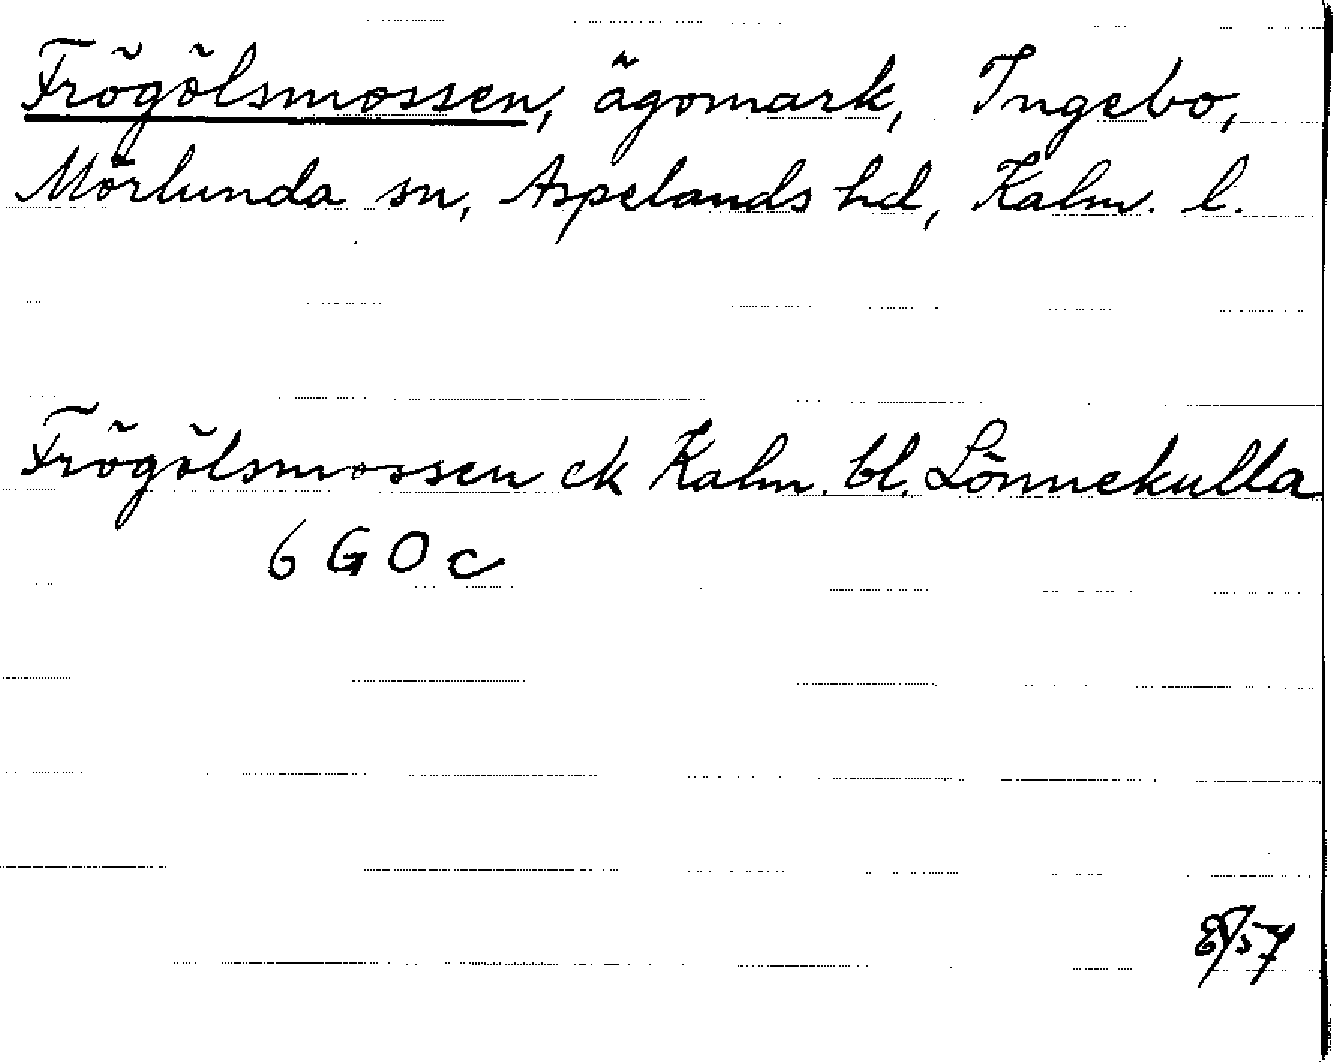 Frögölsmossen, ägomark, Ingebo,
Mörlunda sn, Aspelands hd, Kalm. l.
Frögölsmossen ek Kalm. bl. Lönnekulla
6 G O c